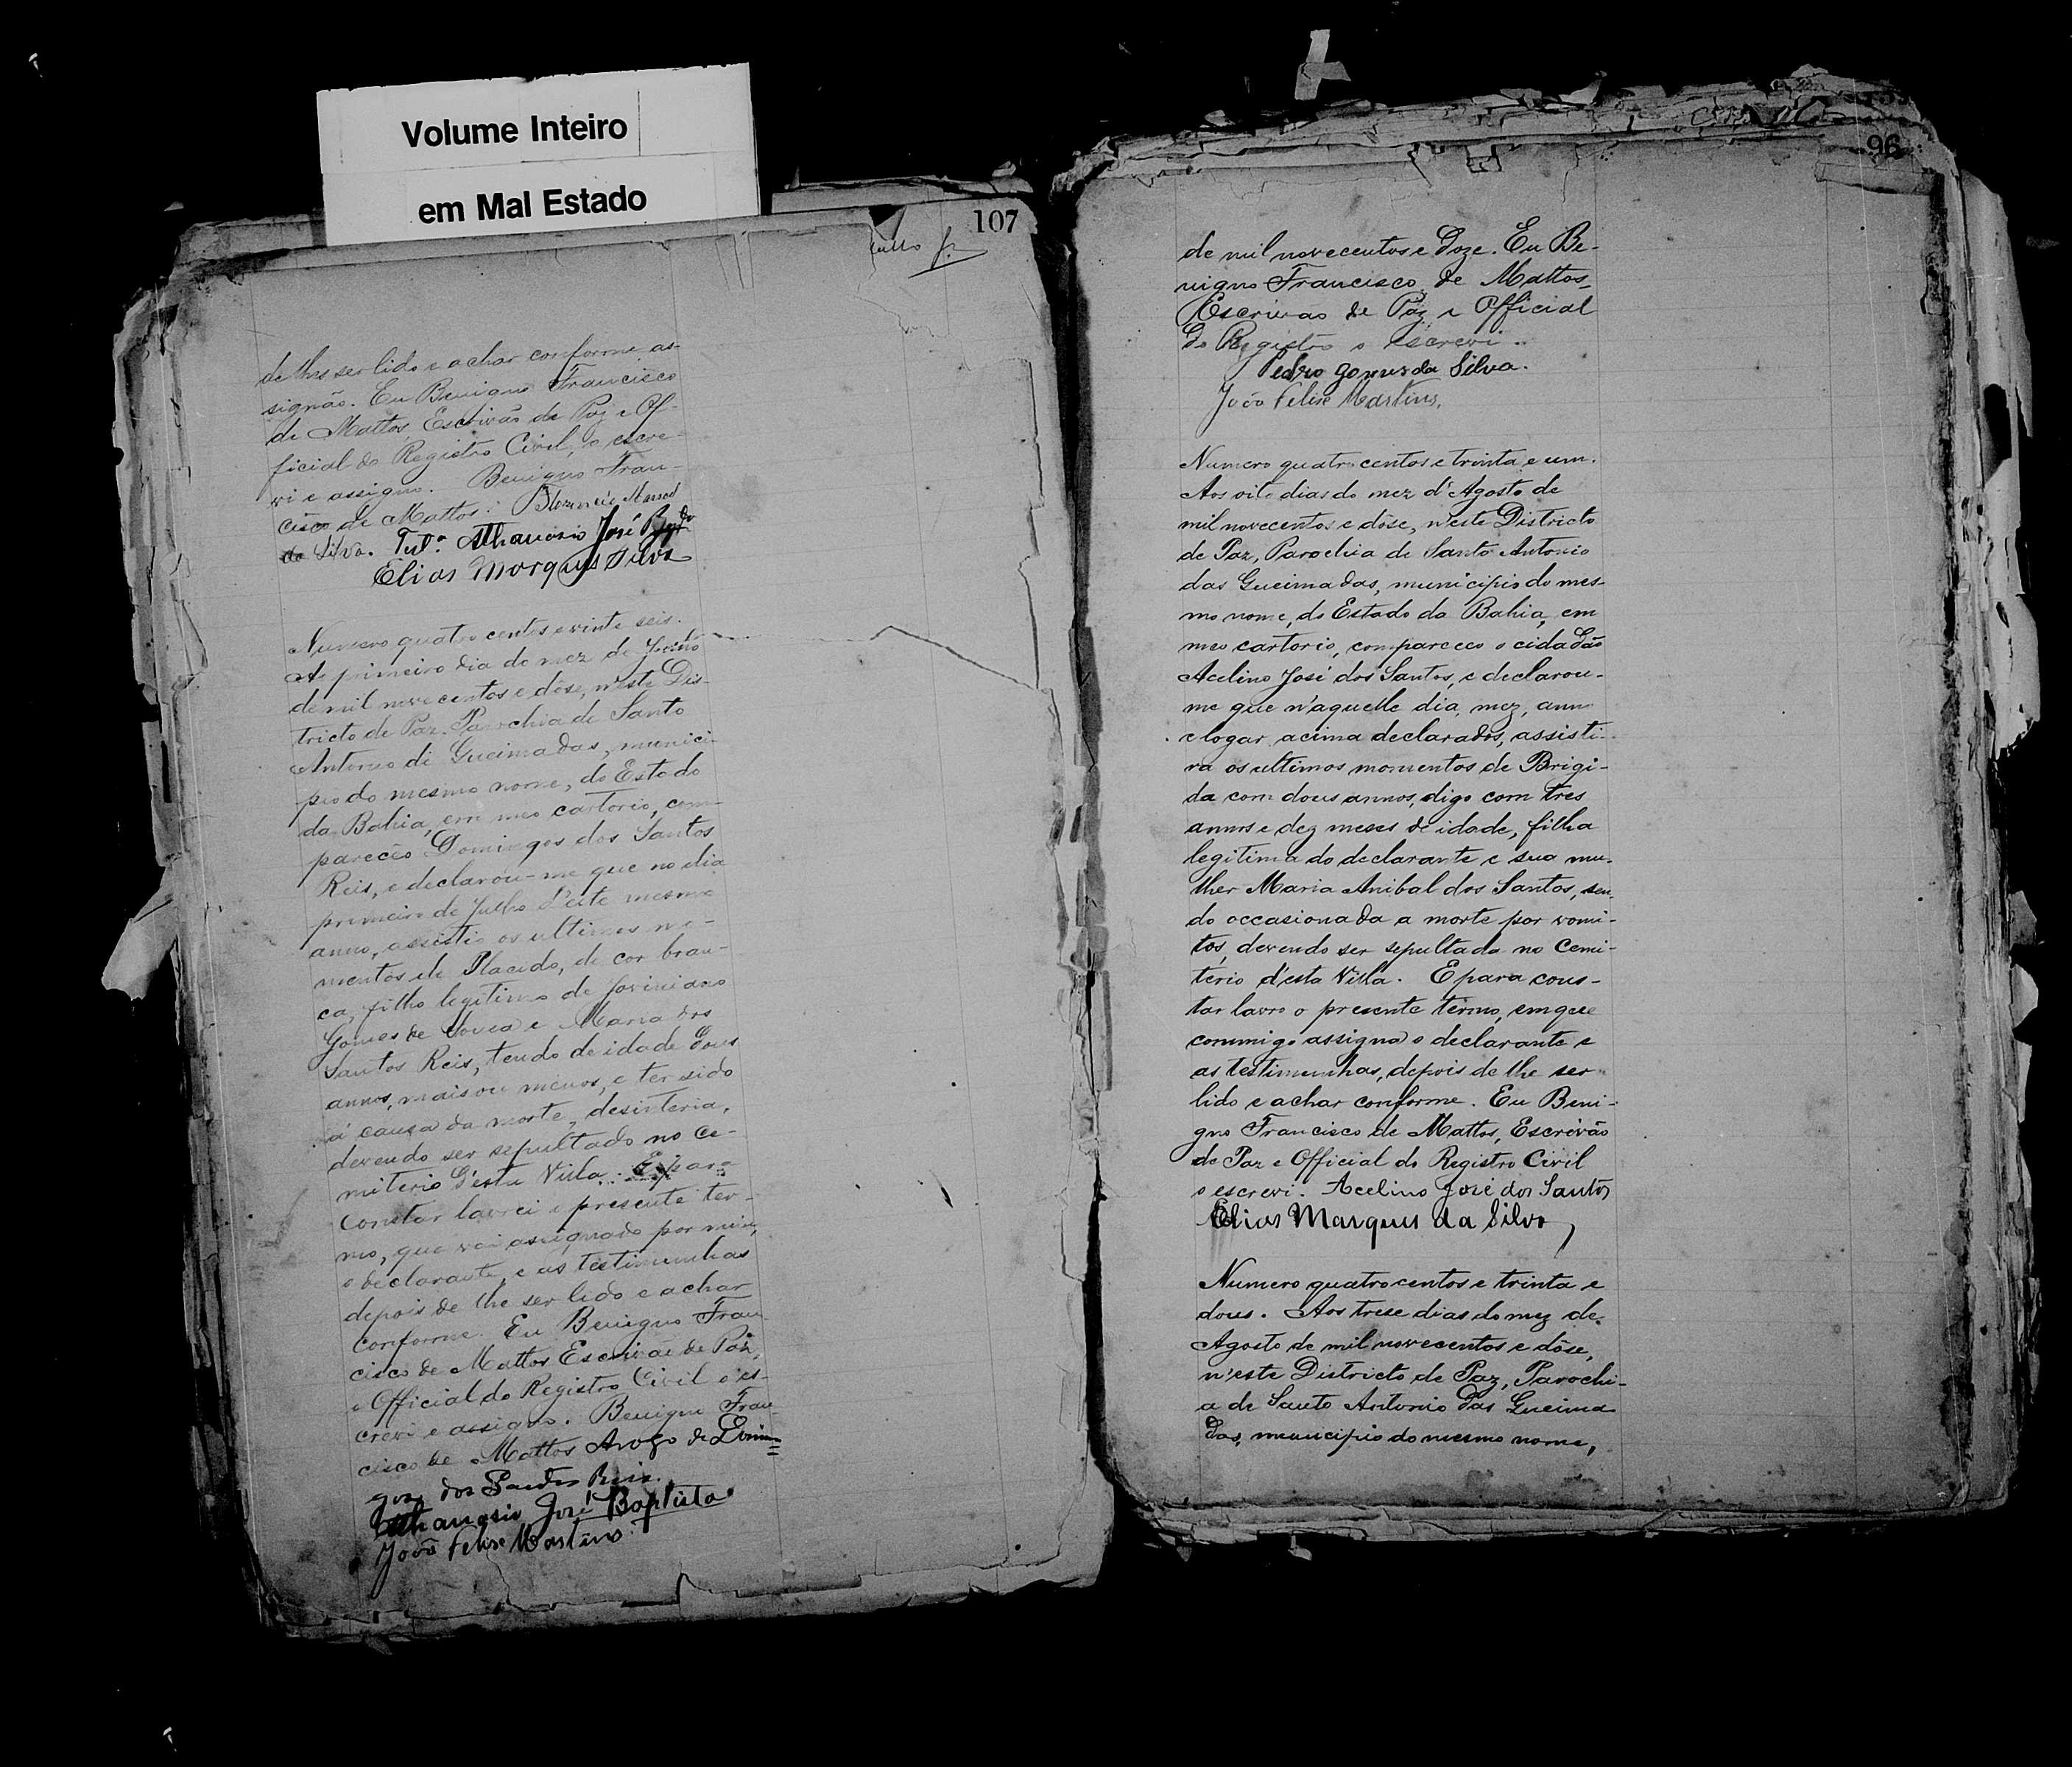 Volume Inteiro
em Mal Estado
107
de lhes ser lido e achar conforme as-
signão. Eu Benigno Francisco
de Mattos Escrivão de Paz e Of-
ficial do Registro Civil, o escre-
vi e assigno. Benigno Fran-
cisco de Mattos.
da Silva. Athanasio José
Elias Marques Silva
Numero quatro centos e vinte seis.
Ao primeiro dia do mez de
de mil nove centos e dôse, n'este Dis-
tricto de Paz, Parochia de Santo
Antonio de Gueimadas, munici-
pio do mesmo nome, do Estado
da Bahia, em meo cartorio, com-
pareceo Domingos dos Santos
Reis, e declarou-me que no dia
primeiro de Julho d'este mesmo
anno, assistio os ultimos mo-
mentos de Placido, de cor bran-
ca, filho legitimo de Joviniano
Gomes de Sousa e Maria dos
Santos Reis, tendo de idade dous
annos, mais ou menos, e ter sido
a causa da morte, desinteria,
devendo ser sepultado no Ce-
miterio d'esta Villa. E para
constar lavrei o presente ter-
mo, que vai assignado por mim,
o declarante, e as testimunhas
depois de lhe ser lido e achar
conforme. Eu Benigno Fran-
cisco de Mattos Escrivão de Paz,
e Official do Registro Civil o es-
crevi e assigno. Benigno Fran-
cisco de Mattos Arogo de Domin=
gos dos Santos Reis.
Athanasio José Baptista
João Felise Martins
96
de mil novecentos e Doze. Eu Be-
nigno Francisco de Mattos,
Escrivao de Paz e Official
do Registro o escrevi.
Pedro Gomes da Silva.
João Felise Martins.
Numero quatro centos e trinta e um.
Aos oito dias do mez d'Agosto de
mil novecentos e dôse, n'este Districto
de Paz, Parochia de Santo Antonio
das Gueimadas, municipio do mes-
mo nome, do Estado da Bahia, em
meo cartorio, compareceo o cidadão
Acelino José dos Santos, e declarou-
me que n'aquelle dia, mez, anno
e logar acima declarados, assisti-
ra os ultimos momentos de Brigi-
da com dous annos, digo com tres
annos e dez meses de idade, filha
legitima do declarante e sua mu-
lher Maria Anibal dos Santos, sen-
do occasionada a morte por vomi-
tos, devendo ser sepultada no Cemi-
terio d'esta Villa. E para cons-
tar lavro o presente têrmo, em que
commigo assigna o declarante e
as testimunhas, depois de lhe ser
lido e achar conforme. Eu Beni-
gno Francisco de Mattos, Escrivão
de Paz e Official do Registro Civil
o escrevi. Acelino José dos Santos
Elias Marques da Silva,
Numero quatro centos e trinta e
dous. Aos trese dias do mez de
Agosto de mil novecentos e dôse,
n'este Districto de Paz, Parochi-
a de Santo Antonio das Gueima
das, municipio do mesmo nome,